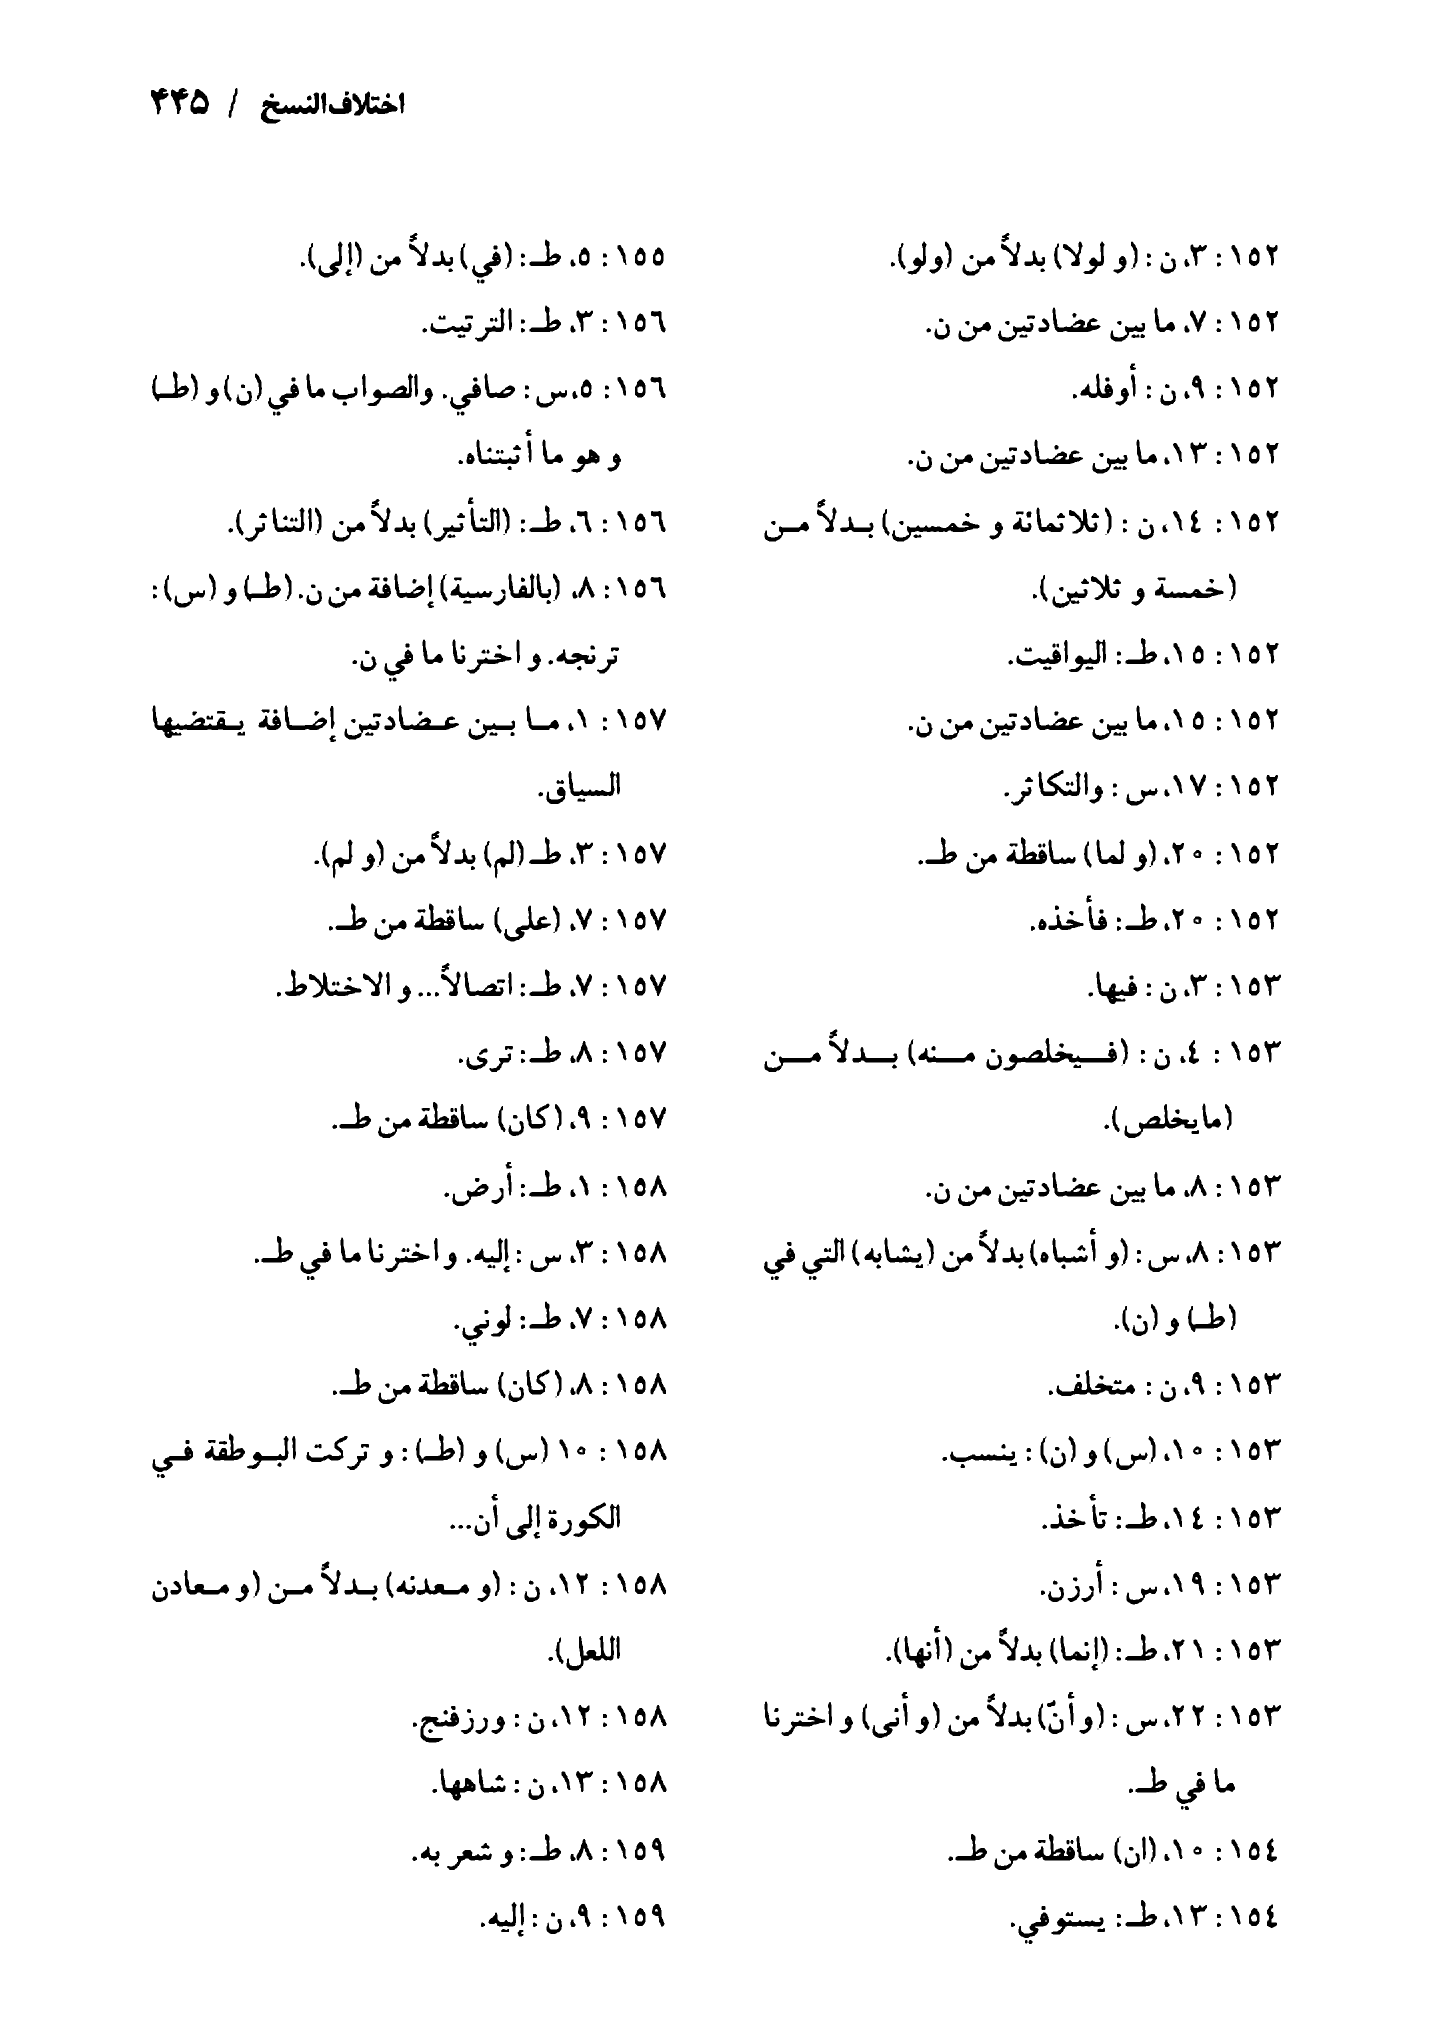 اختلاف النسخ / ۴۴۵
١٥٢: ٣، ن: (و لولا) بدلاً من (ولو).
١٥٢: ٧، ما بين عضادتين من ن.
١٥٢: ٩، ن: أوفله.
١٥٢: ١٣، ما بين عضادتين من ن.
١٥٢: ١٤، ن: (ثلاثمائة و خمسين) بدلاً من
(خمسة و ثلاثين).
١٥٢: ١٥، طـ: اليواقيت.
١٥٢: ١٥، ما بين عضادتين من ن.
١٥٢: ١٧، س: والتكاثر.
١٥٢: ٢٠، (و لما) ساقطة من طـ.
١٥٢: ٢٠، طـ: فأخذه.
١٥٣: ٣، ن: فيها.
١٥٣: ٤، ن: (فيخلصون منه) بدلاً من
(مايخلص).
١٥٣: ٨، ما بين عضادتين من ن.
١٥٣: ٨، س: (و أشباه) بدلاً من (يشابه) التي في
(طـ) و (ن).
١٥٣: ٩، ن: متخلف.
١٥٣: ١٠، (س) و (ن): ينسب.
١٥٣: ١٤، طـ: تأخذ.
١٥٣: ١٩، س: أرزن.
١٥٣: ٢١، طـ: (إنما) بدلاً من (أنها).
١٥٣: ٢٢، س: (و أنّ) بدلاً من (و أنى) و اخترنا
ما في طـ.
١٥٤: ١٠، (ان) ساقطة من طـ.
١٥٤: ١٣، طـ: يستوفي.
١٥٥: ٥، طـ: (في) بدلاً من (إلى).
١٥٦: ٣، طـ: الترتيت.
١٥٦: ٥، س: صافي. والصواب ما في (ن) و (طـ)
و هو ما أثبتناه.
١٥٦: ٦، طـ: (التأثير) بدلاً من (التناثر).
١٥٦: ٨، (بالفارسية) إضافة من ن. (طـ) و (س):
ترنجه. و اخترنا ما في ن.
١٥٧: ١، ما بين عضادتين إضافة يقتضيها
السياق.
١٥٧: ٣، طـ (لم) بدلاً من (و لم).
١٥٧: ٧، (على) ساقطة من طـ.
١٥٧: ٧، طـ: اتصالاً... و الاختلاط.
١٥٧: ٨، طـ: ترى.
١٥٧: ٩، (كان) ساقطة من طـ.
١٥٨: ١، طـ: أرض.
١٥٨: ٣، س: إليه. و اخترنا ما في طـ.
١٥٨: ٧، طـ: لوني.
١٥٨: ٨، (كان) ساقطة من طـ.
١٥٨: ١٠ (س) و (طـ): و تركت البوطقة في
الكورة إلى أن...
١٥٨: ١٢، ن: (و معدنه) بدلاً من (و معادن
اللعل).
١٥٨: ١٢، ن: ورزفنج.
١٥٨: ١٣، ن: شاهها.
١٥٩: ٨، طـ: و شعر به.
١٥٩: ٩، ن: إليه.